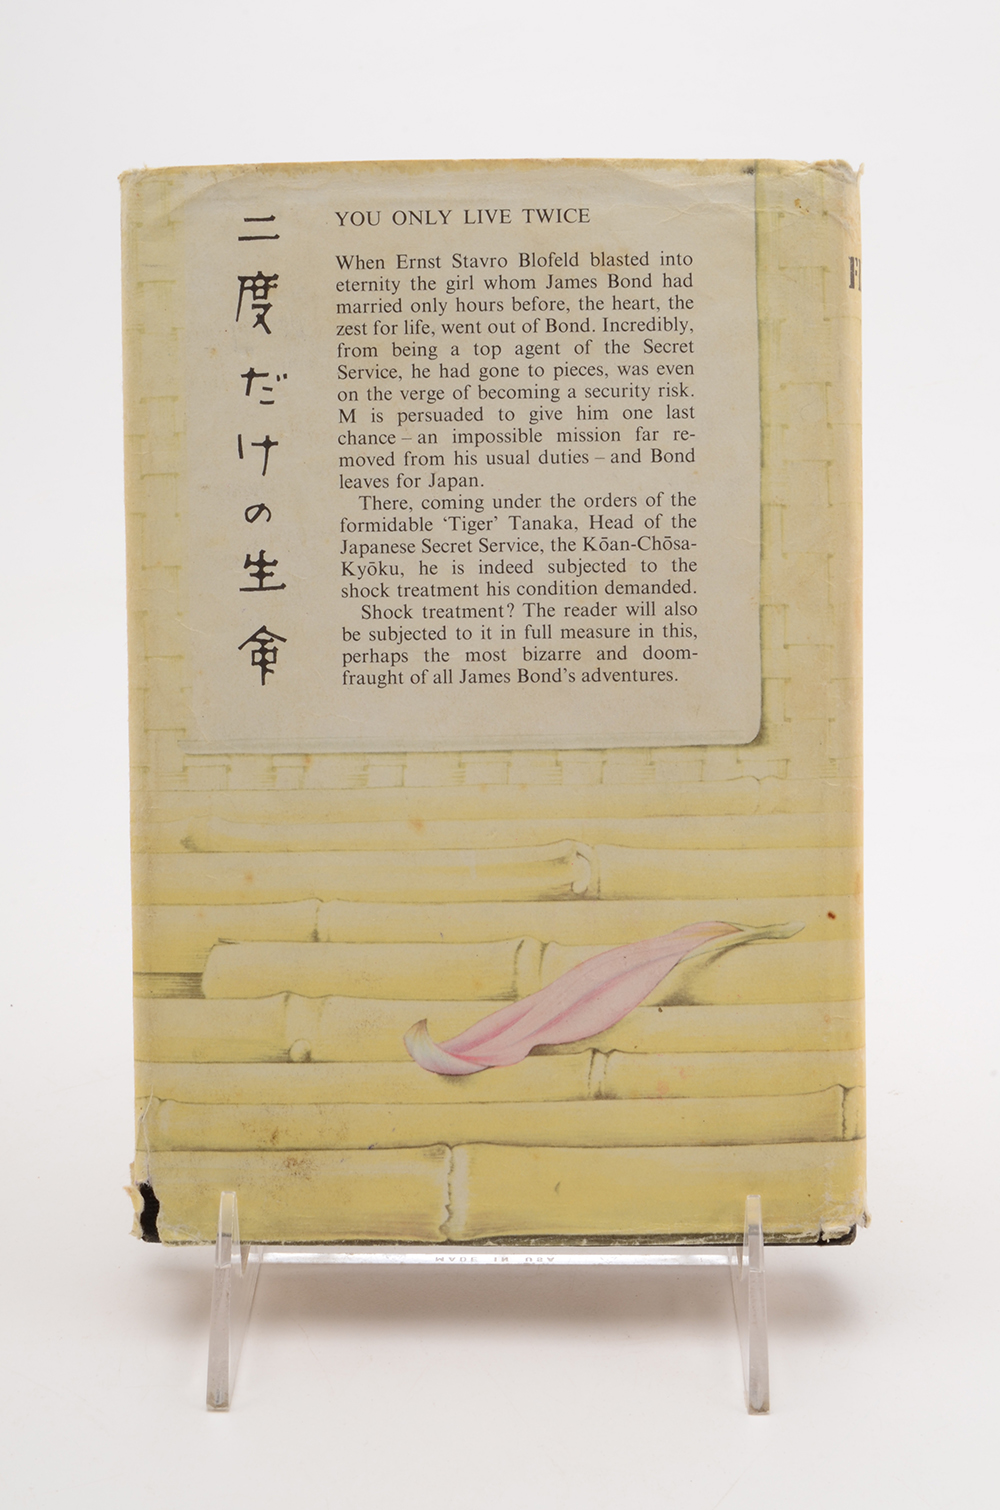 二度だけの生命
YOU ONLY LIVE TWICE
When Ernst Stavro Blofeld blasted into
eternity the girl whom James Bond had
married only hours before, the heart, the
zest for life, went out of Bond. Incredibly,
from being a top agent of the Secret
Service, he had gone to pieces, was even
on the verge of becoming a security risk.
M is persuaded to give him one last
chance – an impossible mission far re-
moved from his usual duties – and Bond
leaves for Japan.
There, coming under the orders of the
formidable ‘Tiger’ Tanaka, Head of the
Japanese Secret Service, the Kōan-Chōsa-
Kyōku, he is indeed subjected to the
shock treatment his condition demanded.
Shock treatment? The reader will also
be subjected to it in full measure in this,
perhaps the most bizarre and doom-
fraught of all James Bond’s adventures.
MADE IN USA